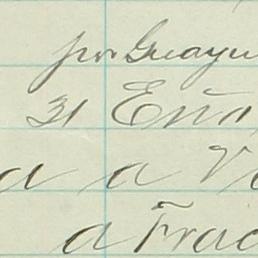 por Guayu
31 En
a a V
a Frac